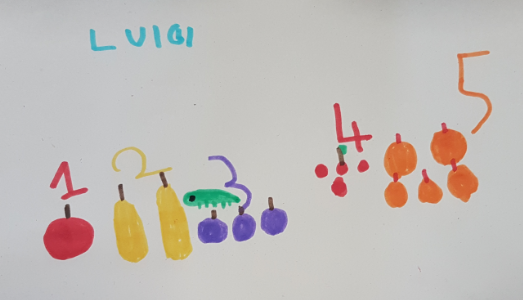 LUIGI
1 2 3 4 5